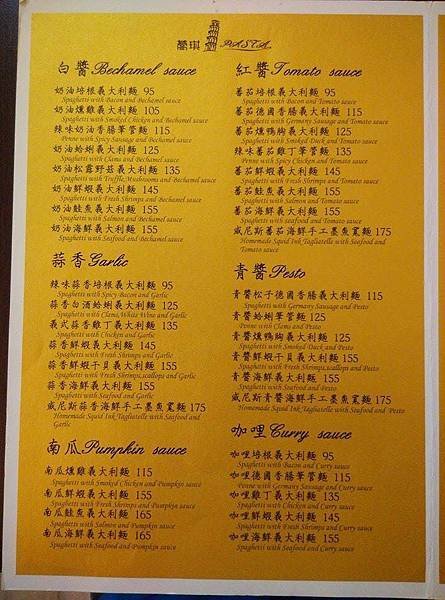 蕎琪 PASTA
白醬Bechamel sauce
奶油培根義大利麵 95
Spaghetti with Bacon and Bechamel sauce
奶油燻雞義大利麵 105
Spaghetti with Smoked Chicken and Bechamel sauce
辣味奶油香腸筆管麵 115
Penne with Spicy Sausage and Bechamel sauce
奶油蛤蜊義大利麵 125
Spaghetti with Clams and Bechamel sauce
奶油松露野菇義大利麵 135
Spaghetti with Truffle,Mushrooms and Bechamel sauce
奶油鮮蝦義大利麵 145
Spaghetti with Fresh Shrimps and Bechamel sauce
奶油鮭魚義大利麵 155
Spaghetti with Salmon and Bechamel sauce
奶油海鮮義大利麵 155
Spaghetti with Seafood and Bechamel sauce
蒜香Garlic
辣味蒜香培根義大利麵 95
Spaghetti with Spicy Bacon and Garlic
蒜香白酒蛤蜊義大利麵 125
Spaghetti with Clams,White Wine and Garlic
義式蒜香雞丁義大利麵 135
Spaghetti with Chicken and Garlic
蒜香鮮蝦義大利麵 145
Spaghetti with Fresh Shrimps and Garlic
蒜香鮮蝦干貝義大利麵 155
Spaghetti with Fresh Shrimps,scallops and Garlic
蒜香海鮮義大利麵 155
Spaghetti with Seafood and Garlic
威尼斯蒜香海鮮手工墨魚寬麵 175
Homemade Squid Ink Tagliatelle with Seafood and
Garlic
南瓜Pumpkin sauce
南瓜燻雞義大利麵 115
Spaghetti with Smoked Chicken and Pumpkin sauce
南瓜鮮蝦義大利麵 155
Spaghetti with Fresh Shrimps and Pumpkin sauce
南瓜鮭魚義大利麵 165
Spaghetti with Salmon and Pumpkin sauce
南瓜海鮮義大利麵 165
Spaghetti with Seafood and Pumpkin sauce
紅醬Tomato sauce
蕃茄培根義大利麵 95
Spaghetti with Bacon and Tomato sauce
蕃茄德國香腸義大利麵 115
Spaghetti with Germany Sausage and Tomato sauce
蕃茄燻鴨胸義大利麵 125
Spaghetti with Smoked Duck and Tomato sauce
辣味蕃茄雞丁筆管麵 135
Penne with Spicy Chicken and Tomato sauce
蕃茄鮮蝦義大利麵 145
Spaghetti with Fresh Shrimps and Tomato sauce
蕃茄鮭魚義大利麵 155
Spaghetti with Salmon and Tomato sauce
蕃茄海鮮義大利麵 155
Spaghetti with seafood and Tomato sauce
威尼斯蕃茄海鮮手工墨魚寬麵 175
Homemade Squid Ink Tagliatelle with Seafood and
Tomato sauce
青醬Pesto
青醬松子德國香腸義大利麵 115
Spaghetti with Germany Sausage and Pesto
青醬蛤蜊筆管麵 125
Penne with Clams and Pesto
青醬燻鴨胸義大利麵 125
Spaghetti with Smoked Duck and Pesto
青醬鮮蝦干貝義大利麵 155
Spaghetti with Fresh Shrimps,scallops and Pesto
青醬海鮮義大利麵 155
Spaghetti with Seafood and Pesto
威尼斯青醬海鮮手工墨魚寬麵 175
Homemade Squid Ink Tagliatelle with Seafood and Pesto
咖哩Curry sauce
咖哩培根義大利麵 95
Spaghetti with Bacon and Curry sauce
咖哩德國香腸筆管麵 115
Penne with Germany Sausage and Curry sauce
咖哩雞丁義大利麵 135
Spaghetti with Chicken and Curry sauce
咖哩鮮蝦義大利麵 145
Spaghetti with Fresh Shrimps and Curry sauce
咖哩海鮮義大利麵 155
Spaghetti with Seafood and Curry sauce